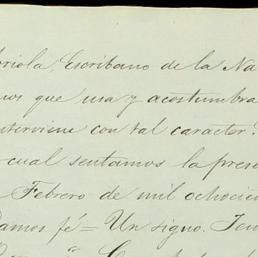 oriola, Escribano de la Na
nos que usa y acostumbra
nterviene con tal caracter.
cual sentamos la prese
Febrero de mil ochocien
Damos fé = Un signo.